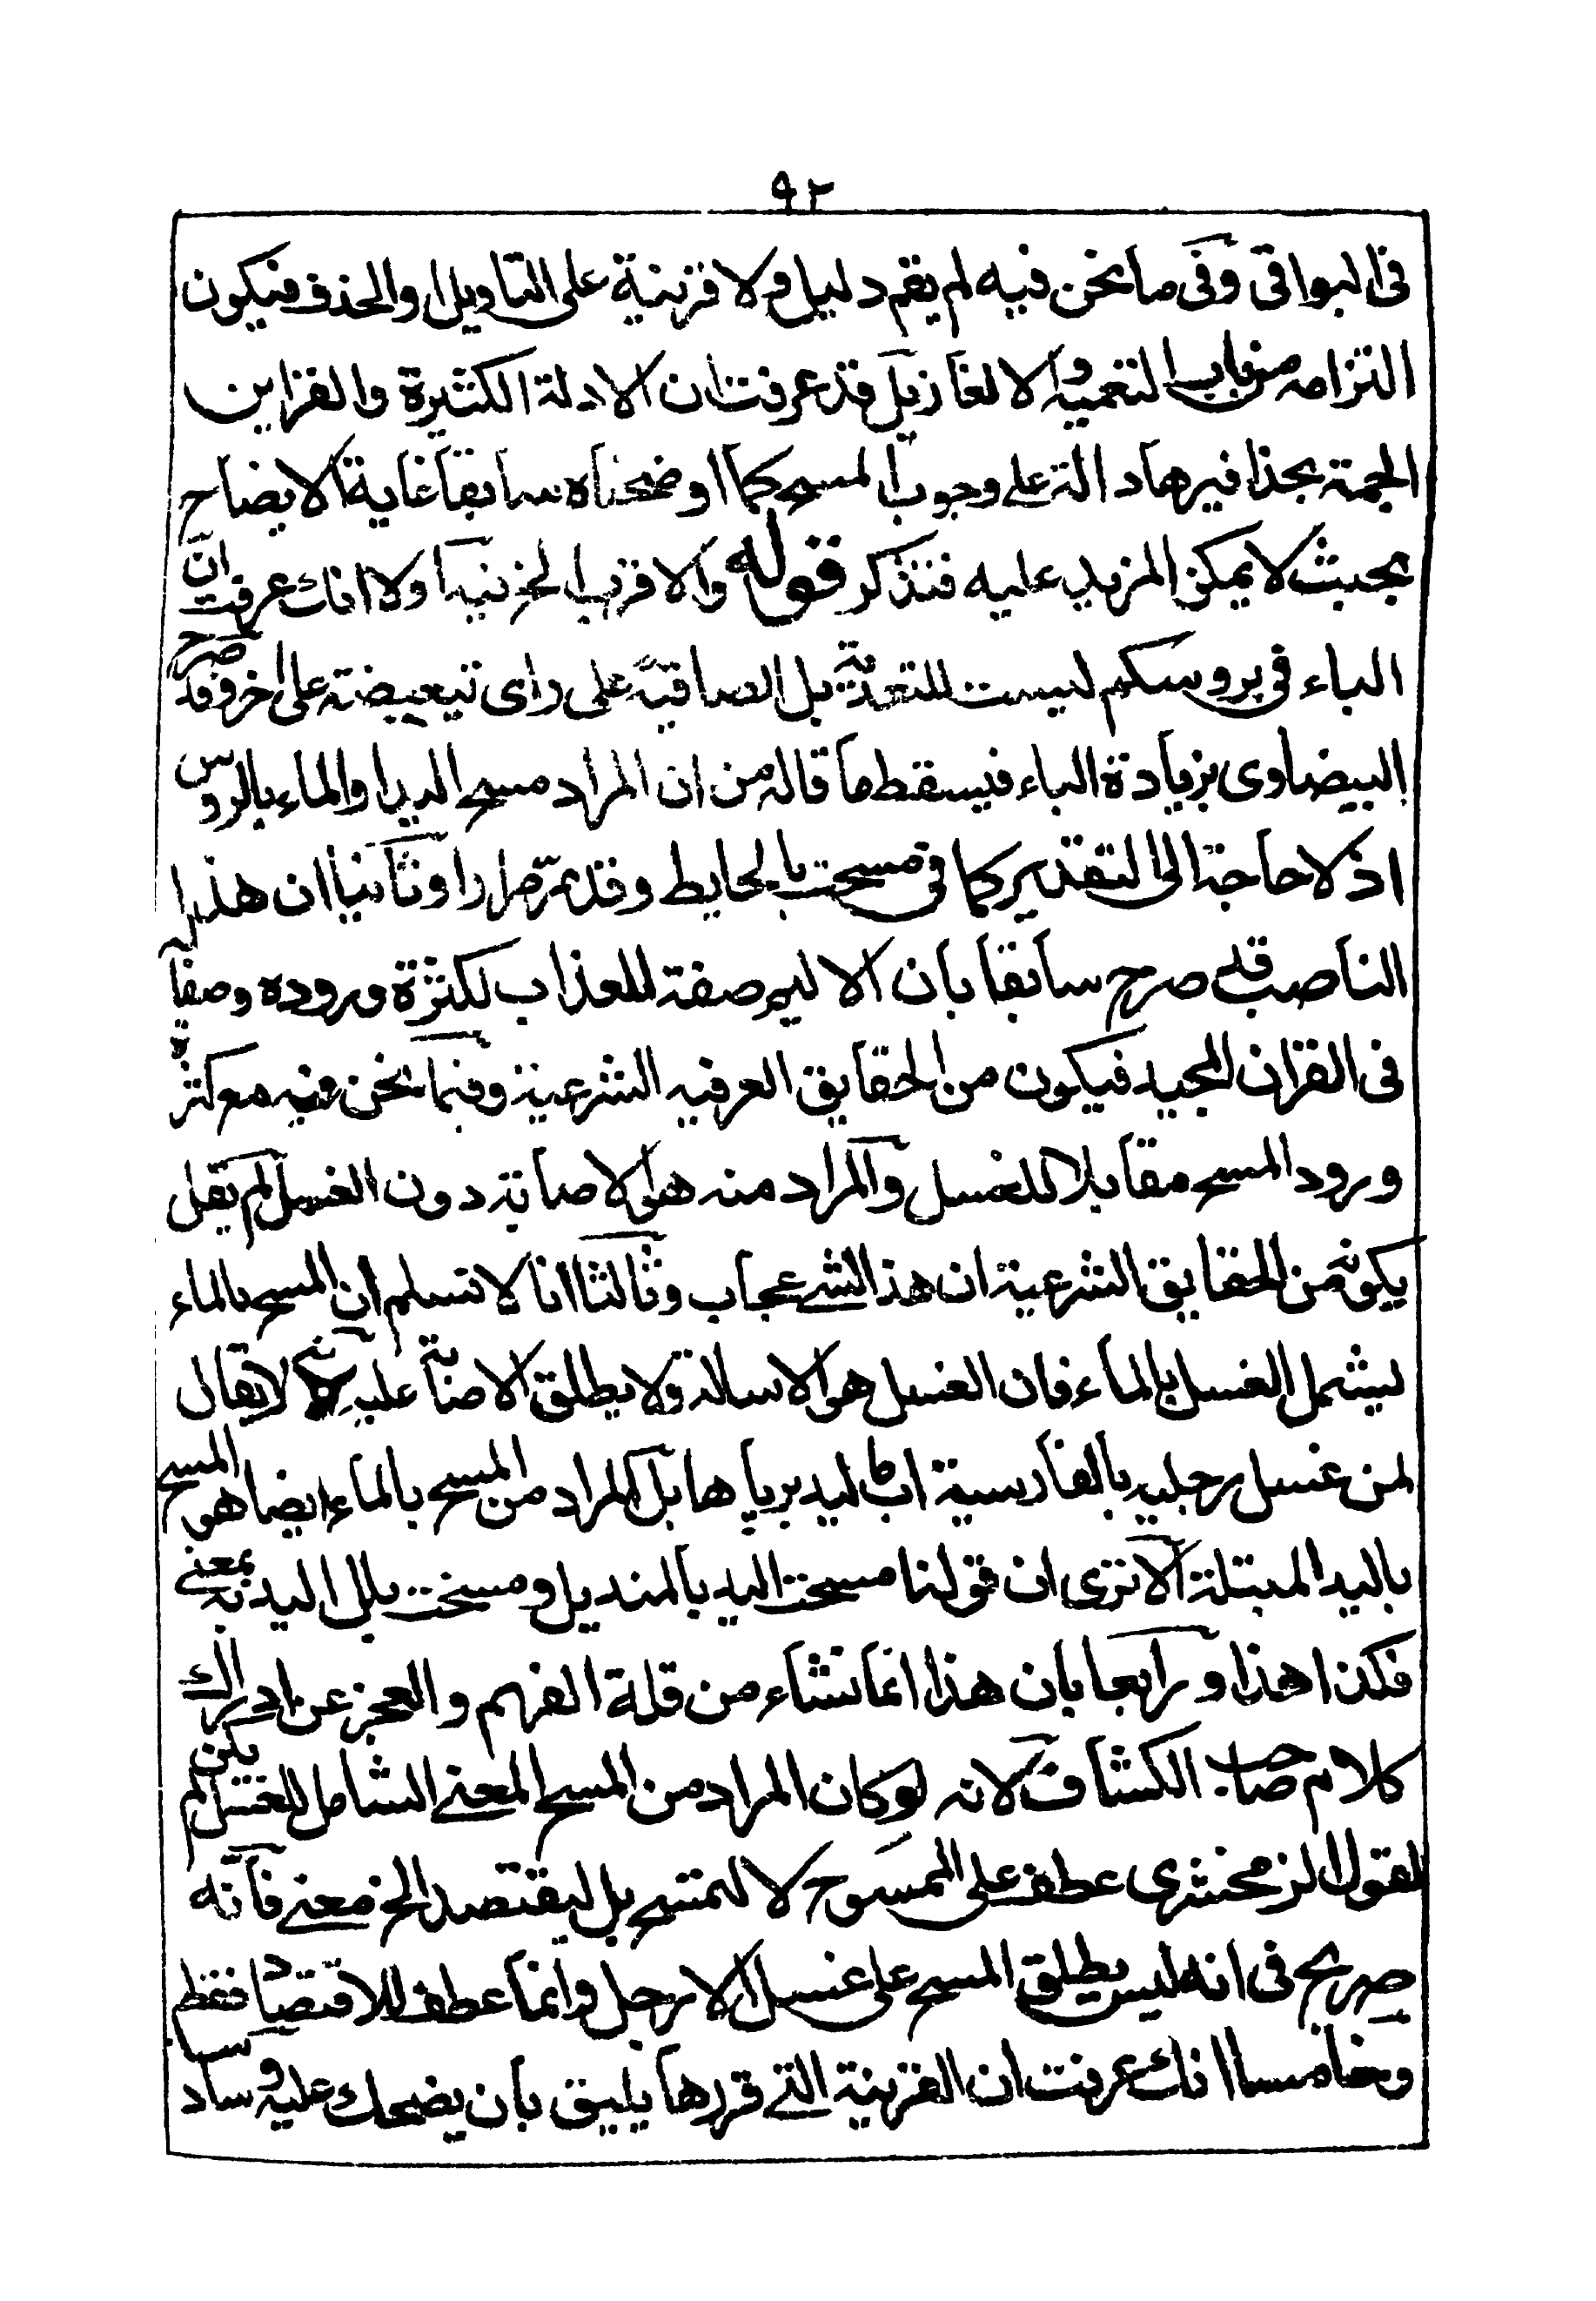 ٩٢
فى البواقى وفى ما نحن فيه لم يقم دليل ولا قرينة على التاويل او الحذف فيكون
التزامه من باب التعمية والالغاز بل قد عرفت ان الادلة الكثيرة والقراين
الجمة بحذافيرها دالة على وجوب المسح كما اوضحناه سابقا غاية الايضاح
بحيث لا يمكن المزيد عليه فتذكر قوله والاقرب الخ فيه اولا انك عرفت ان
الباء فى بروسكم ليست للتعدية بل الصاقية على راى تبعيضة على اخر وقد صرح
البيضاوى بزيادة الباء فيسقط ما قاله من ان المراد مسح اليد او الماء بالروس
اذ لا حاجة الى التقدير كما فى مسحت بالحايط وقد مر مرارا وثانيا ان هذا
الناصب قد صرح سابقا بان الاليم صفة للعذاب لكثرة وروده وصفا
فى القران المجيد فيكون من الحقايق العرفيه الشرعية وفيما نحن فيه مع كثرة
ورود المسح مقابلا للغسل والمراد منه هو الاصابة دون الغسل لم يقل
بكونه من الحقايق الشرعية ان هذا لشئ عجاب وثالثا انا لا نسلم ان المسح بالماء
يشمل الغسل بالماء فان الغسل هو الاسالة ولا يطلق الاصابة عليه لا يقال
لمن غسل رجليه بالفارسية اب ماليد بر پاها بل المراد من المسح بالماء ايضا هو المسح
باليد المبتلة الا ترى ان قولنا مسحت اليد بالمنديل ومسحت بلل اليد به بمعنى
فكذا هذا ورابعا بان هذا انما نشاء من قلة الفهم والعجز عن ادراك
كلام صاحب الكشاف لانه لو كان المراد من المسح المعنى الشامل للغسل لم يكن
لقول الزمخشرى عطف على الممسوح لا لتمسح بل ليقتصد الخ معنى فانه
صريح فى انه ليس يطلق المسح على غسل الارجل وانما عطف للاقتصاد فقط
وخامسا انك عرفت ان القرينة التى قررها يليق بان يضحك عليه وسادسا